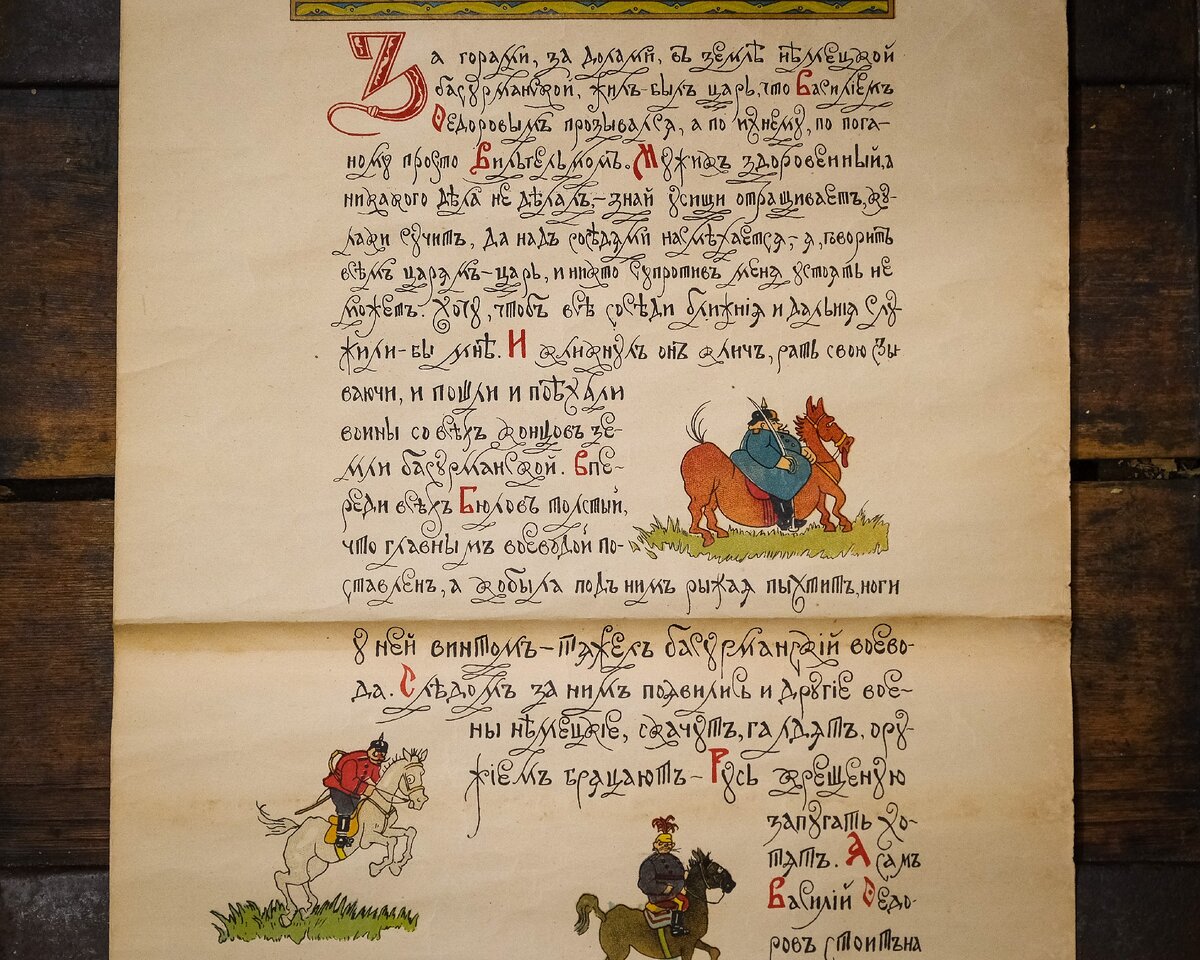 За горами, за долами, въ землѣ нѣмецкой
басурманской, жилъ-былъ царь, что Василіемъ
Ѳедоровымъ прозывался, а по ихнему, по пога-
ному просто Вильгельмомъ. Мужикъ здоровенный, а
никакого дѣла не дѣлалъ,–знай усищи отращиваетъ, ку-
лаки сучитъ, да надъ сосѣдями насмѣхается,–я, говоритъ
всѣмъ царямъ–царь, и никто супротивъ меня устоять не
можетъ. Хочу, чтобъ всѣ сосѣди ближнія и дальнія слу
жили-бы мнѣ. И кликнулъ онъ кличъ, рать свою сзы-
ваючи, и пошли и поѣхали
воины со всѣхъ концовъ зе-
мли басурманской. Впе-
реди всѣхъ Бюловъ толстый,
что главнымъ воеводой по-
ставленъ, а кобыла подъ нимъ рыжая пыхтитъ, ноги
у ней винтомъ–тяжелъ басурманскій воево-
да. Слѣдомъ за нимъ появились и другіе вое-
ны нѣмецкіе, скачутъ, галдятъ, ору-
жіемъ бряцаютъ–Русь крещеную
запугать хо-
тятъ. А самъ
Василій Ѳедо-
ровъ стоитъ на